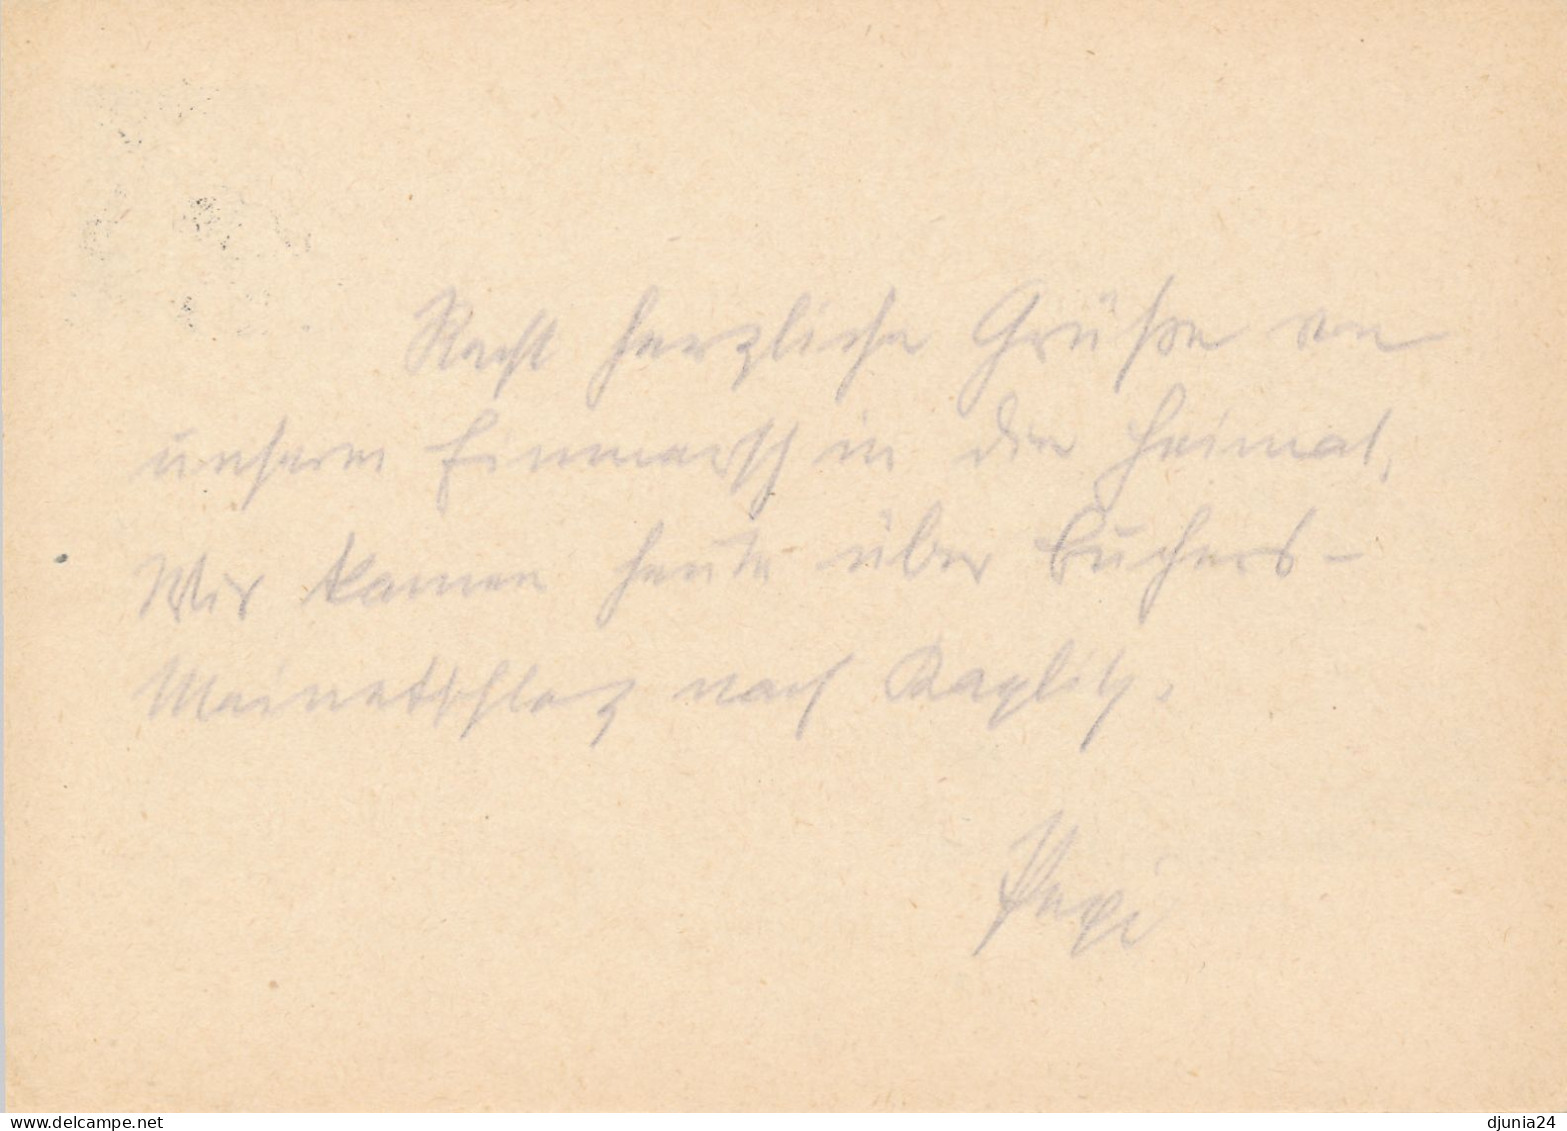 Recht herzliche Grüße von
unserem Einmarsch in die Heimat.
Wir kamen heute über Buchers-
Meinetschlag nach Kaplitz.
Pepi
www.delcampe.net
djunia24